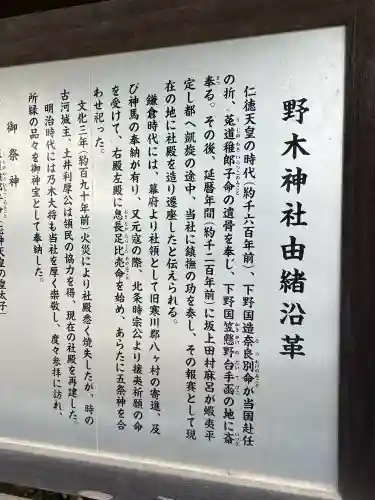 野木神社由緒沿革
仁徳天皇の時代(約千六百年前)、下野国造奈良別命が当国赴任
の折、莵道稚郎子命の遺骨を奉じ、下野国笠懸野台手函の地に斎
奉る。その後、延暦年間(約千二百年前)に坂上田村麻呂が蝦夷平
定し都へ凱旋の途中、当社に鎮撫の功を奏し、その報賽として現
在の地に社殿を造り遷座したと伝えられる。
鎌倉時代には、幕府より社領として旧寒川郡八ヶ村の寄進、及
び神馬の奉納が有り、又元寇の際、北条時宗公より攘夷祈願の命
を受けて、右殿左殿に息長足比売命を始め、あらたに五祭神を合
わせ祀った。
文化三年(約百九十年前)火災により社殿悉く焼失したが、時の
古河城主、土井利厚公は領民の協力を得、現在の社殿を再建した。
明治時代には乃木大将も当社を厚く崇敬し、度々参拝に訪れ、
所縁の品々を御神宝として奉納した。
御祭神